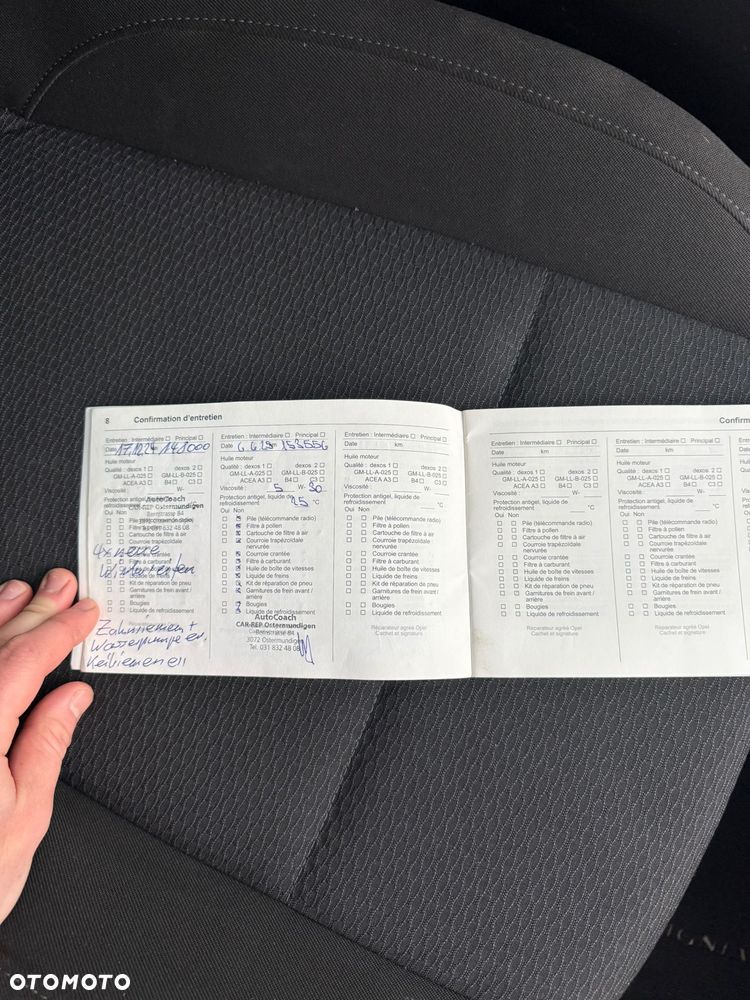 8 Confirmation d'entretien
Entretien : Intermédiaire ☐ Principal ☐
Date 17.10.24 141000
Huile moteur
Qualité : dexos 1 ☐ dexos 2 ☐
GM-LL-A-025 ☐ GM-LL-B-025 ☐
ACEA A3 ☐ B4 ☐ C3 ☐
Viscosité : W-
Protection antigel, liquide de
refroidissement
AutoCoach
CAR-REP Ostermundigen
Bernstrasse 84
Oui Non
Filtre à carburant
Liquide de freins
Kit de réparation de pneu
Garnitures de frein avant /
arrière
Bougies
Liquide de refroidissement
Zahnriemen +
Wasserpumpe er.
Keilriemen
Entretien : Intermédiaire ☐ Principal ☐
Date 6.6.25 km 153556
Huile moteur
Qualité : dexos 1 ☐ dexos 2 ☐
GM-LL-A-025 ☐ GM-LL-B-025 ☐
ACEA A3 ☐ B4 ☐ C3 ☐
Viscosité : 5 W- 30
Protection antigel, liquide de
refroidissement °C
Oui Non
Pile (télécommande radio)
Filtre à pollen
Cartouche de filtre à air
Courroie trapézoïdale
nervurée
Courroie crantée
Filtre à carburant
Huile de boîte de vitesses
Liquide de freins
Kit de réparation de pneu
Garnitures de frein avant /
arrière
Bougies
Liquide de refroidissement
AutoCoach
CAR-REP Ostermundigen
Bernstrasse 84
3072 Ostermundigen
Tel. 031 832 48 08
Entretien : Intermédiaire ☐ Principal ☐
Date km
Huile moteur
Qualité : dexos 1 ☐ dexos 2 ☐
GM-LL-A-025 ☐ GM-LL-B-025 ☐
ACEA A3 ☐ B4 ☐ C3 ☐
Viscosité : W-
Protection antigel, liquide de
refroidissement °C
Oui Non
Pile (télécommande radio)
Filtre à pollen
Cartouche de filtre à air
Courroie trapézoïdale
nervurée
Courroie crantée
Filtre à carburant
Huile de boîte de vitesses
Liquide de freins
Kit de réparation de pneu
Garnitures de frein avant /
arrière
Bougies
Liquide de refroidissement
Réparateur agréé Opel
Cachet et signature
Confirm
Entretien : Intermédiaire ☐ Principal ☐
Date km
Huile moteur
Qualité : dexos 1 ☐ dexos 2 ☐
GM-LL-A-025 ☐ GM-LL-B-025 ☐
ACEA A3 ☐ B4 ☐ C3 ☐
Viscosité : W-
Protection antigel, liquide de
refroidissement °C
Oui Non
Pile (télécommande radio)
Filtre à pollen
Cartouche de filtre à air
Courroie trapézoïdale
nervurée
Courroie crantée
Filtre à carburant
Huile de boîte de vitesses
Liquide de freins
Kit de réparation de pneu
Garnitures de frein avant /
arrière
Bougies
Liquide de refroidissement
Réparateur agréé Opel
Cachet et signature
Entretien : Intermédiaire ☐ Principal ☐
Date km
Huile moteur
Qualité : dexos 1 ☐ dexos 2 ☐
GM-LL-A-025 ☐ GM-LL-B-025 ☐
ACEA A3 ☐ B4 ☐ C3 ☐
Viscosité : W-
Protection antigel, liquide de
refroidissement °C
Oui Non
Pile (télécommande radio)
Filtre à pollen
Cartouche de filtre à air
Courroie trapézoïdale
nervurée
Courroie crantée
Filtre à carburant
Huile de boîte de vitesses
Liquide de freins
Kit de réparation de pneu
Garnitures de frein avant /
arrière
Bougies
Liquide de refroidissement
Réparateur agréé Opel
Cachet et signature
OTOMOTO